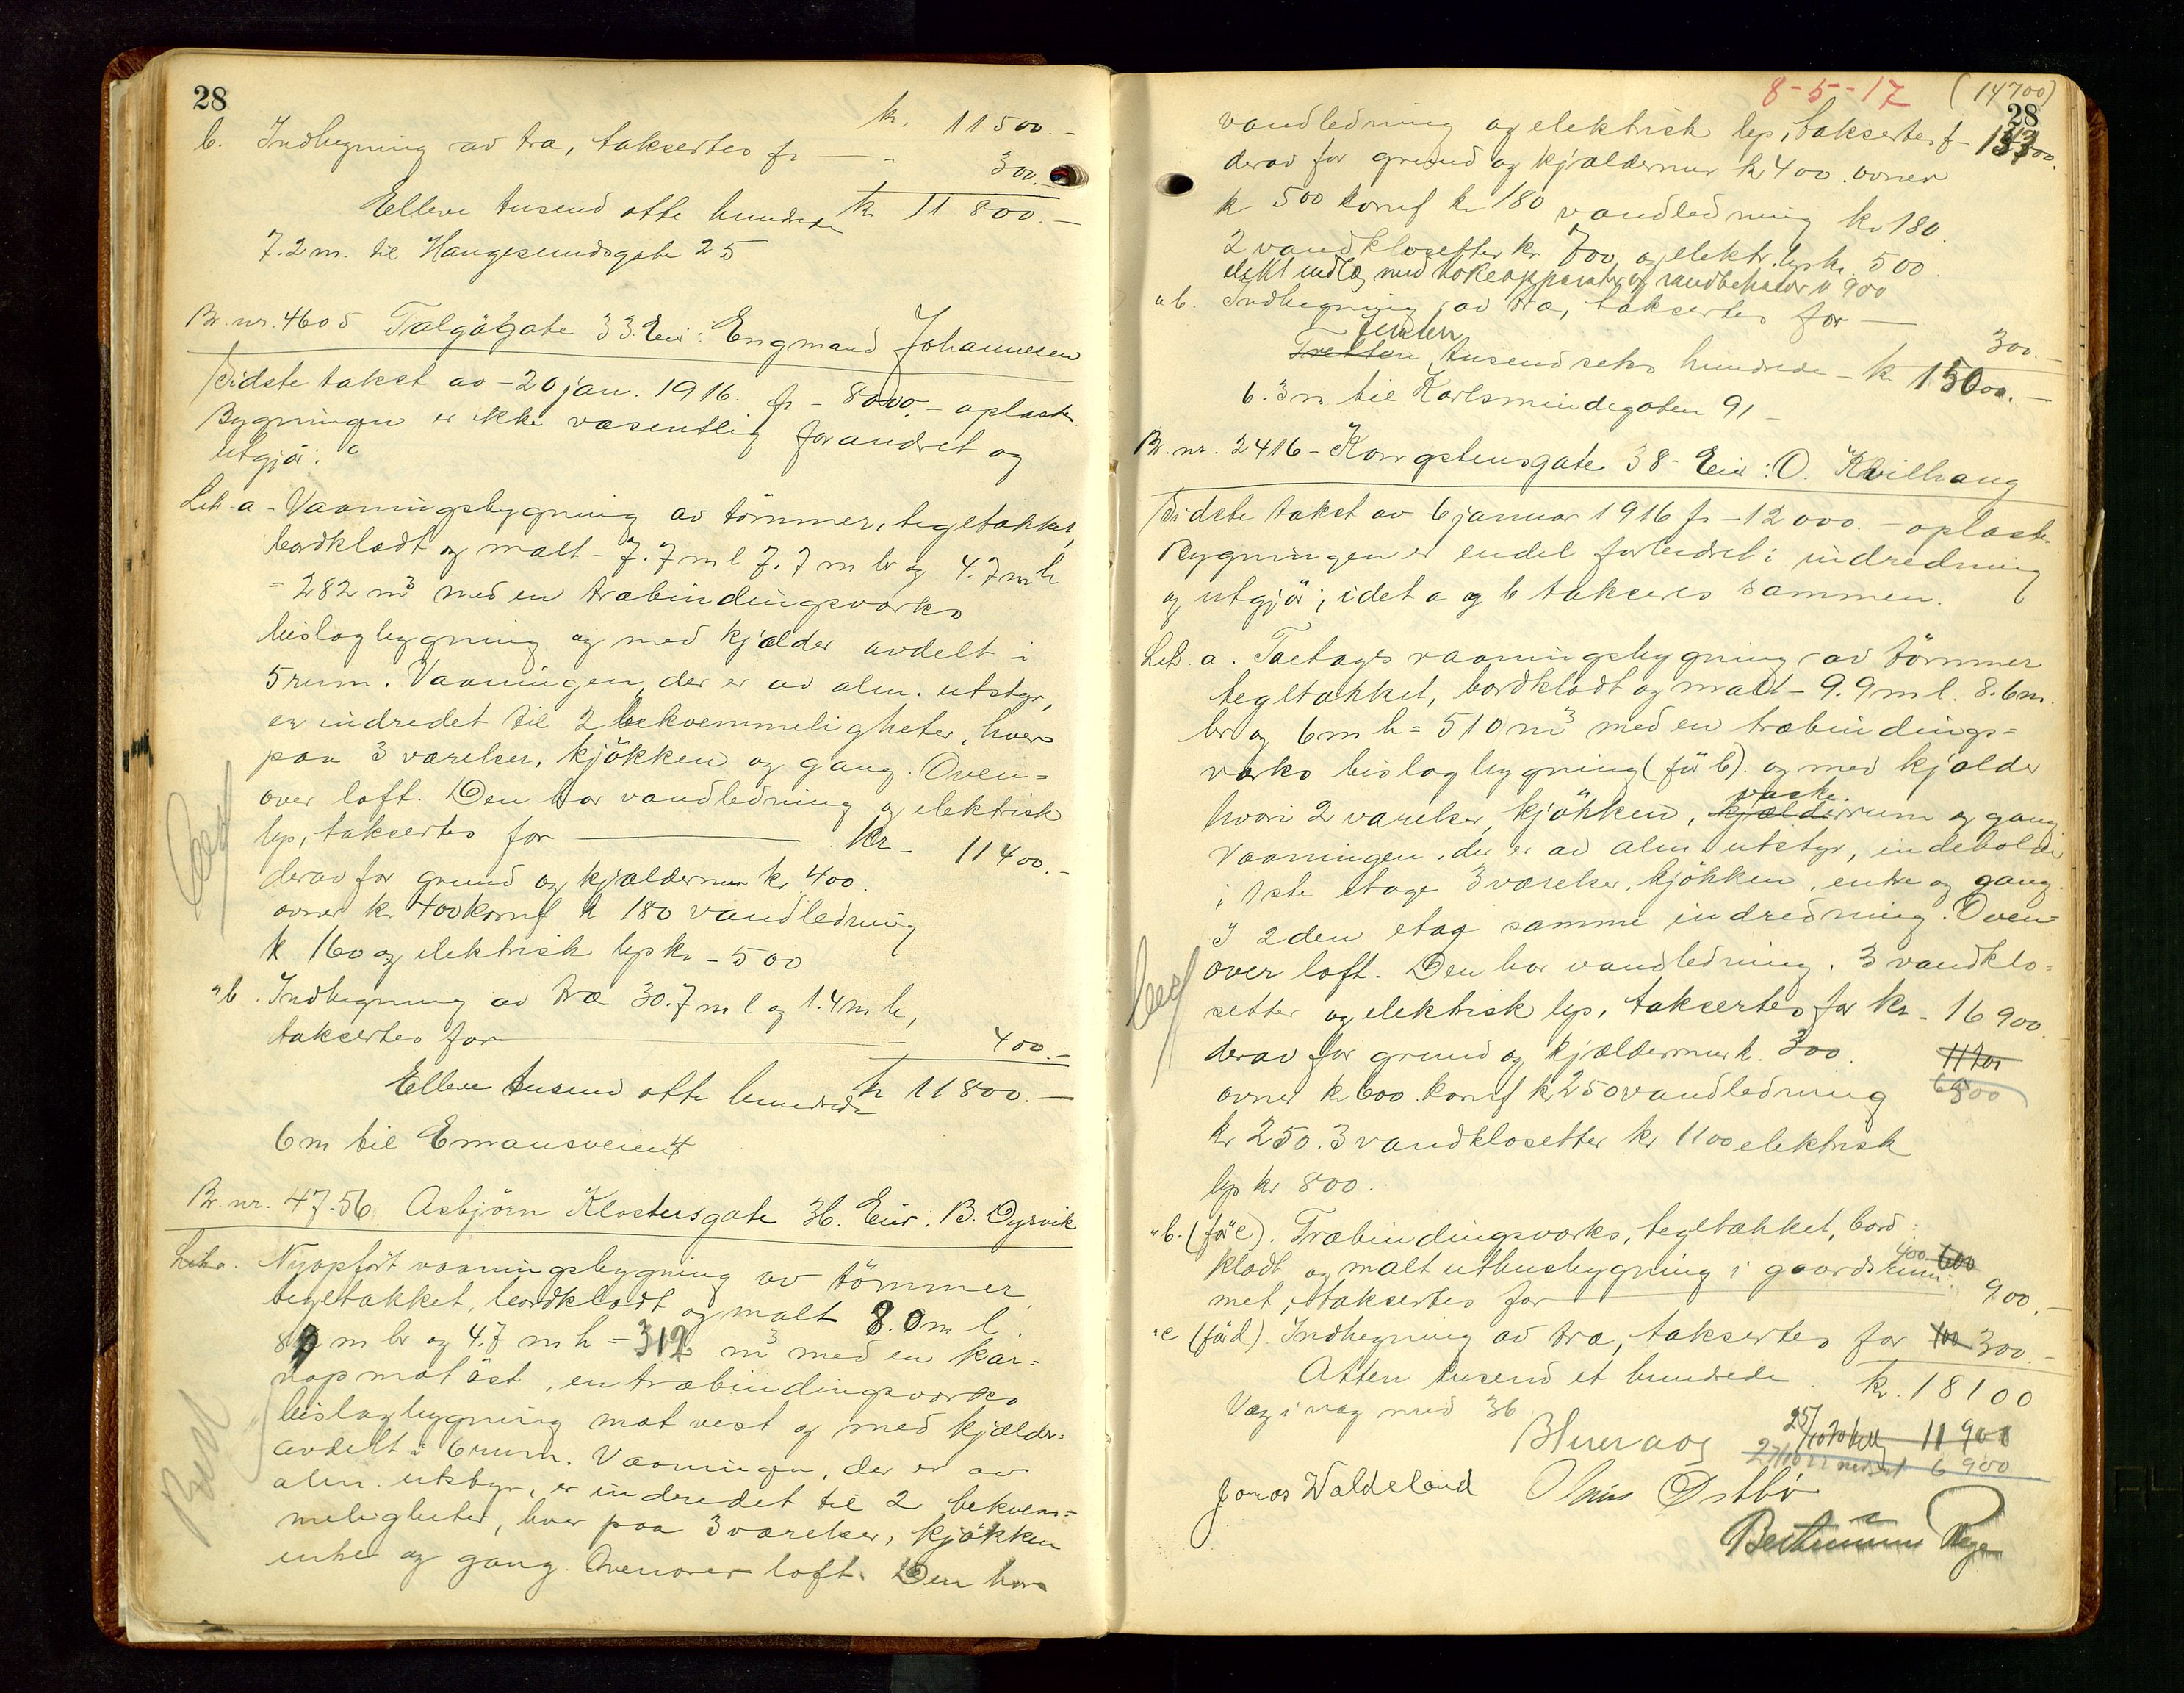 28
kr. 11500.-
b. Indhegning av træ, taksertes fr — " 300.-
Elleve tusend otte hundrede kr 11 800.-
7.2 m. til Haugesundsgate 25
Br. nr. 4605 Talgøgate 33. Eier: Engmand Johannesen
Sidste takst av - 20 jan. 1916. fr - 8000.- oplæstes
Bygningen er ikke væsentlig forandret og
utgjör:
Litr. a - Vaaningsbygning av tömmer, tegltækket,
bordklædt og malt - 7.7 m l 7.7 m br og 4.7 m h
= 282 m³ med en træbindingsværks
bislagbygning og med kjælder avdelt i
5 rum. Vaaningen, der er av alm. utstyr,
er indredet til 2 bekvemmeligheter, hver
paa 3 værelser, kjökken og gang. Oven=
over loft. Den har vandledning og elektrisk
lys, taksertes for — kr - 11400.-
derav for grund og kjældermur kr 400.
ovner kr 400 komf kr 180 vandledning
kr 160 og elektrisk lys kr - 500
" b. Indhegning av træ 30.7 m l og 1.4 m h,
taksertes for — 400.-
Elleve tusend otte hundrede kr 11800.-
6 m til Emausveien 4
Br. nr. 47-56 Asbjörn Klostersgate 36. Eier: B. Dyrvik
Litr a. Nyopfört vaaningsbygning av tömmer,
tegltækket, bordklædt og malt 8.0 m l.
8 m br og 4.7 m h = 312 m³ med en kar=
nap mot öst, en træbindingsværks
bislagbygning mot vest og med kjælder=
avdelt i 6 rum. Vaaningen, der er av
alm. utstyr, er indredet til 2 bekvem=
meligheter, hver paa 3 værelser, kjökken
entre og gang. Ovenover loft. Den har
8-5-17 (14700)
28
vandledning og elektrisk lys, taksertes f -
derav for grund og kjældermur kr 400. ovner
kr 500 komf kr 180 vandledning kr 180.
2 vandklosetter kr 700, og elektr. lys kr. 500.
elektr indlæg med kokeapparater og vandbeholder kr 900
" b. Indhegning av træ, taksertes for — 300.-
femten
Tretten tusend seks hundrede - kr 15000.-
6.3 m til Karlsmindegaten 91 -
Br. nr. 2416 - Kongstensgate 38 - Eier: O. Kvilhaug
Sidste takst av 6 januar 1916 fr - 12000.- oplæstes.
Bygningen er endel forandret i indredning
og utgjör, idet a og b takseres sammen.
Litr. a. Toetages vaaningsbygning av tömmer
tegltækket, bordklædt og malt - 9.9 m l. 8.6 m.
br og 6 m h = 510 m³ med en træbindings=
værks bislagbygning (för b) og med kjælder
hvori 2 værelser, kjökken, kjælderrum og gang
vaske
Vaaningen, der er av alm utstyr, indeholder
i 1ste etage 3 værelser, kjökken, entre og gang.
I 2den etag samme indredning. Oven=
over loft. Den har vandledning, 3 vandklo=
setter og elektrisk lys, taksertes for kr - 16 900
derav for grund og kjældermur kr. 300.
ovner kr 600. komf kr 250 vandledning
kr 250. 3 vandklosetter kr 1100 elektrisk
lys kr 800.
" b. (för c). Træbindingsværks, tegltækket, bord=
klædt og malt uthusbygning i gaardsrum= 400 600
met, taksertes for — 900.-
" c (för d). Indhegning av træ, taksertes for 100 300.-
Atten tusend et hundrede. kr. 18100
Væg i væg med 36
11 900
6 900
Jonas Waldeland
Østbø